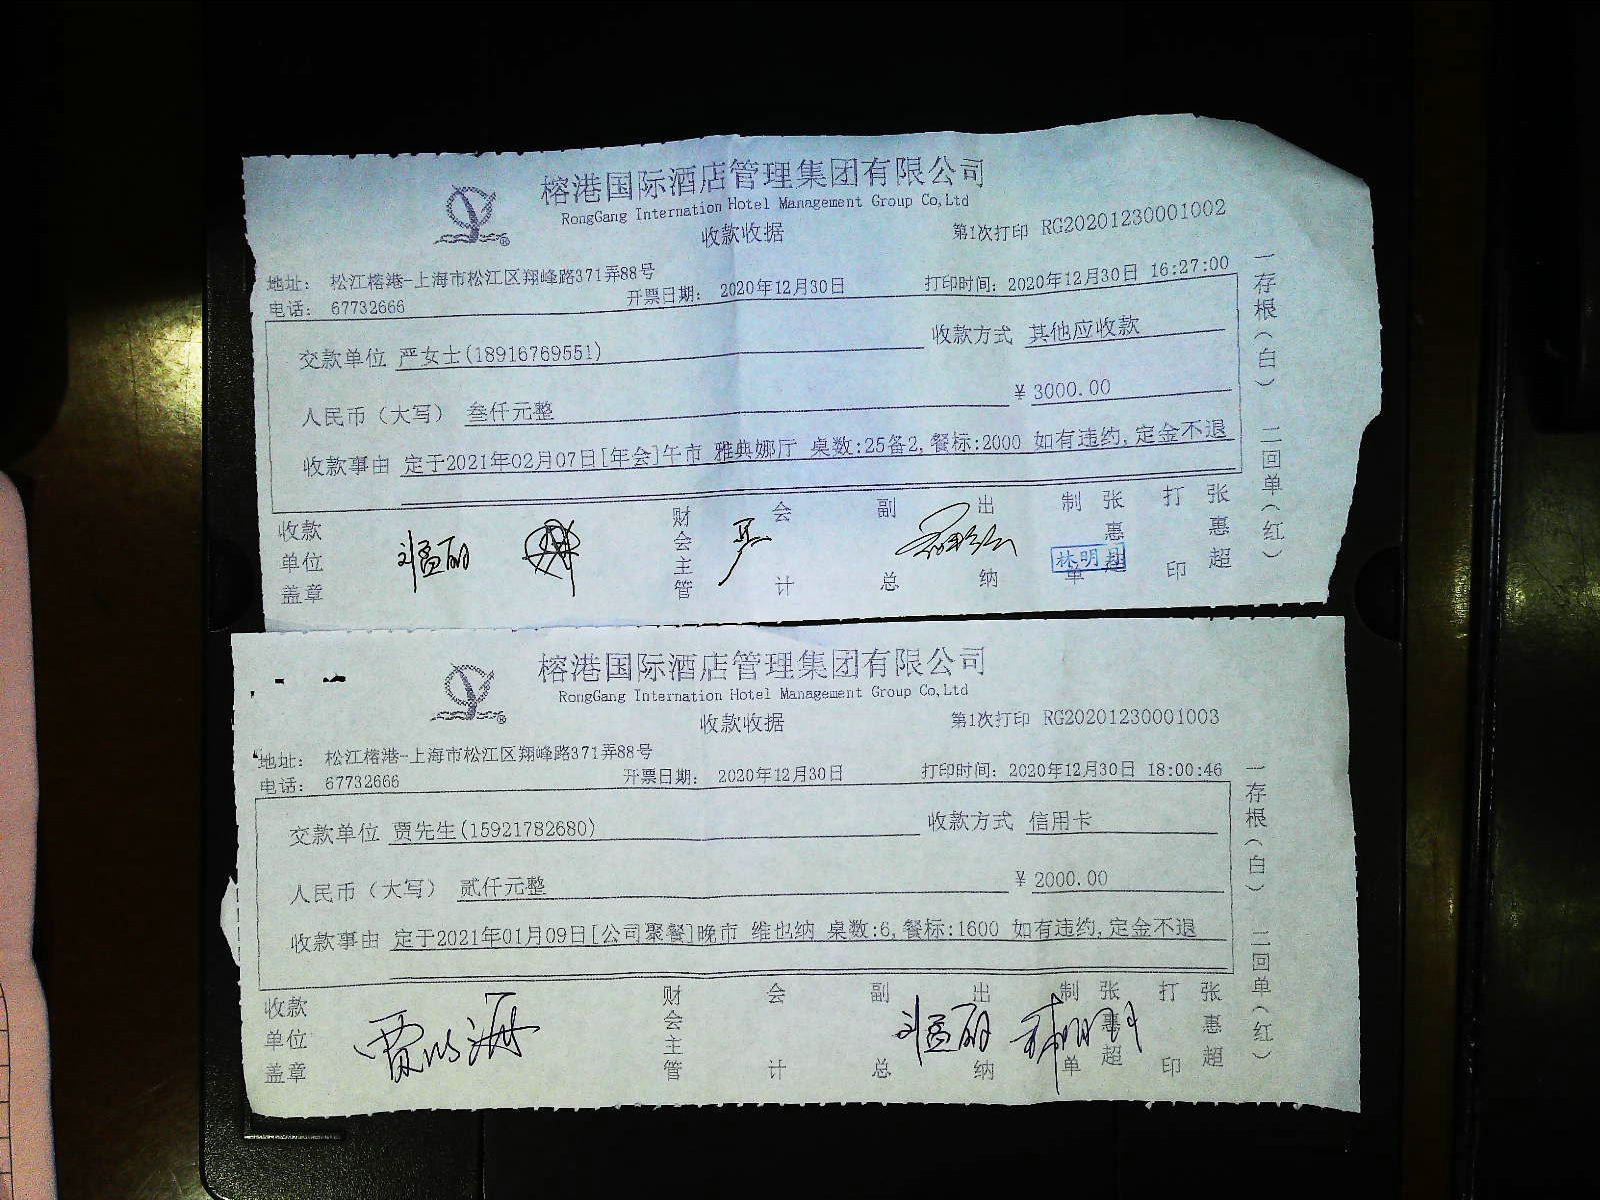 榕港国际酒店管理集团有限公司
RongGang Internation Hotel Management Group Co,Ltd
收款收据
第1次打印 RG20201230001002
地址: 松江榕港-上海市松江区翔峰路371弄88号
电话: 67732666
开票日期: 2020年12月30日
打印时间: 2020年12月30日 16:27:00
交款单位 严女士(18916769551)
收款方式 其他应收款
人民币（大写） 叁仟元整
¥ 3000.00
收款事由 定于2021年02月07日[年会]午市 雅典娜厅 桌数:25备2,餐标:2000 如有违约,定金不退
收款单位盖章
财会主管
会计
副总
出纳
制单
张惠超
打印
张惠超
林明月
一存根（白） 二回单（红）
榕港国际酒店管理集团有限公司
RongGang Internation Hotel Management Group Co,Ltd
收款收据
第1次打印 RG20201230001003
地址: 松江榕港-上海市松江区翔峰路371弄88号
电话: 67732666
开票日期: 2020年12月30日
打印时间: 2020年12月30日 18:00:46
交款单位 贾先生(15921782680)
收款方式 信用卡
人民币（大写） 贰仟元整
¥ 2000.00
收款事由 定于2021年01月09日[公司聚餐]晚市 维也纳 桌数:6,餐标:1600 如有违约,定金不退
收款单位盖章
财会主管
会计
副总
出纳
制单
张惠超
打印
张惠超
一存根（白） 二回单（红）